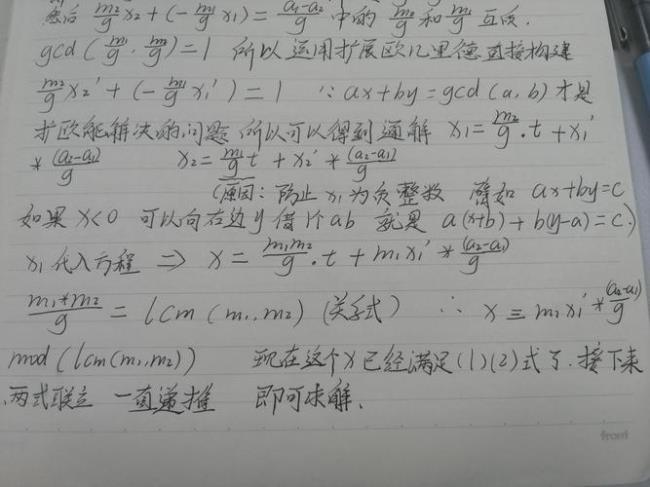 然后 m₂/g x₂ + (-m₁/g x₁) = (a₁-a₂)/g 中的 m₂/g 和 m₁/g 互质.
gcd(m₁/g, m₂/g) = 1 所以 运用扩展欧几里德直接构建
m₂/g x₂' + (-m₁/g x₁') = 1 ∵ ax+by=gcd(a,b) 才是
扩欧能解决的问题 所以可以得到通解 x₁ = m₂/g · t + x₁'
* (a₂-a₁)/g x₂ = m₁/g t + x₂' * (a₂-a₁)/g
(原因: 防止 x₁ 为负整数 譬如 ax+by=c
如果 x<0 可以向右边 y 借1个ab 就是 a(x+b)+b(y-a)=c.)
x₁ 代入方程 ⇒ x = m₁m₂/g · t + m₁x₁' * (a₂-a₁)/g
m₁*m₂/g = lcm(m₁,m₂) (关系式) ∴ x ≡ m₁x₁' * (a₂-a₁)/g
mod(lcm(m₁,m₂)) 现在这个x已经满足(1)(2)式了. 接下来
两式联立 一直递推 即可求解.
front